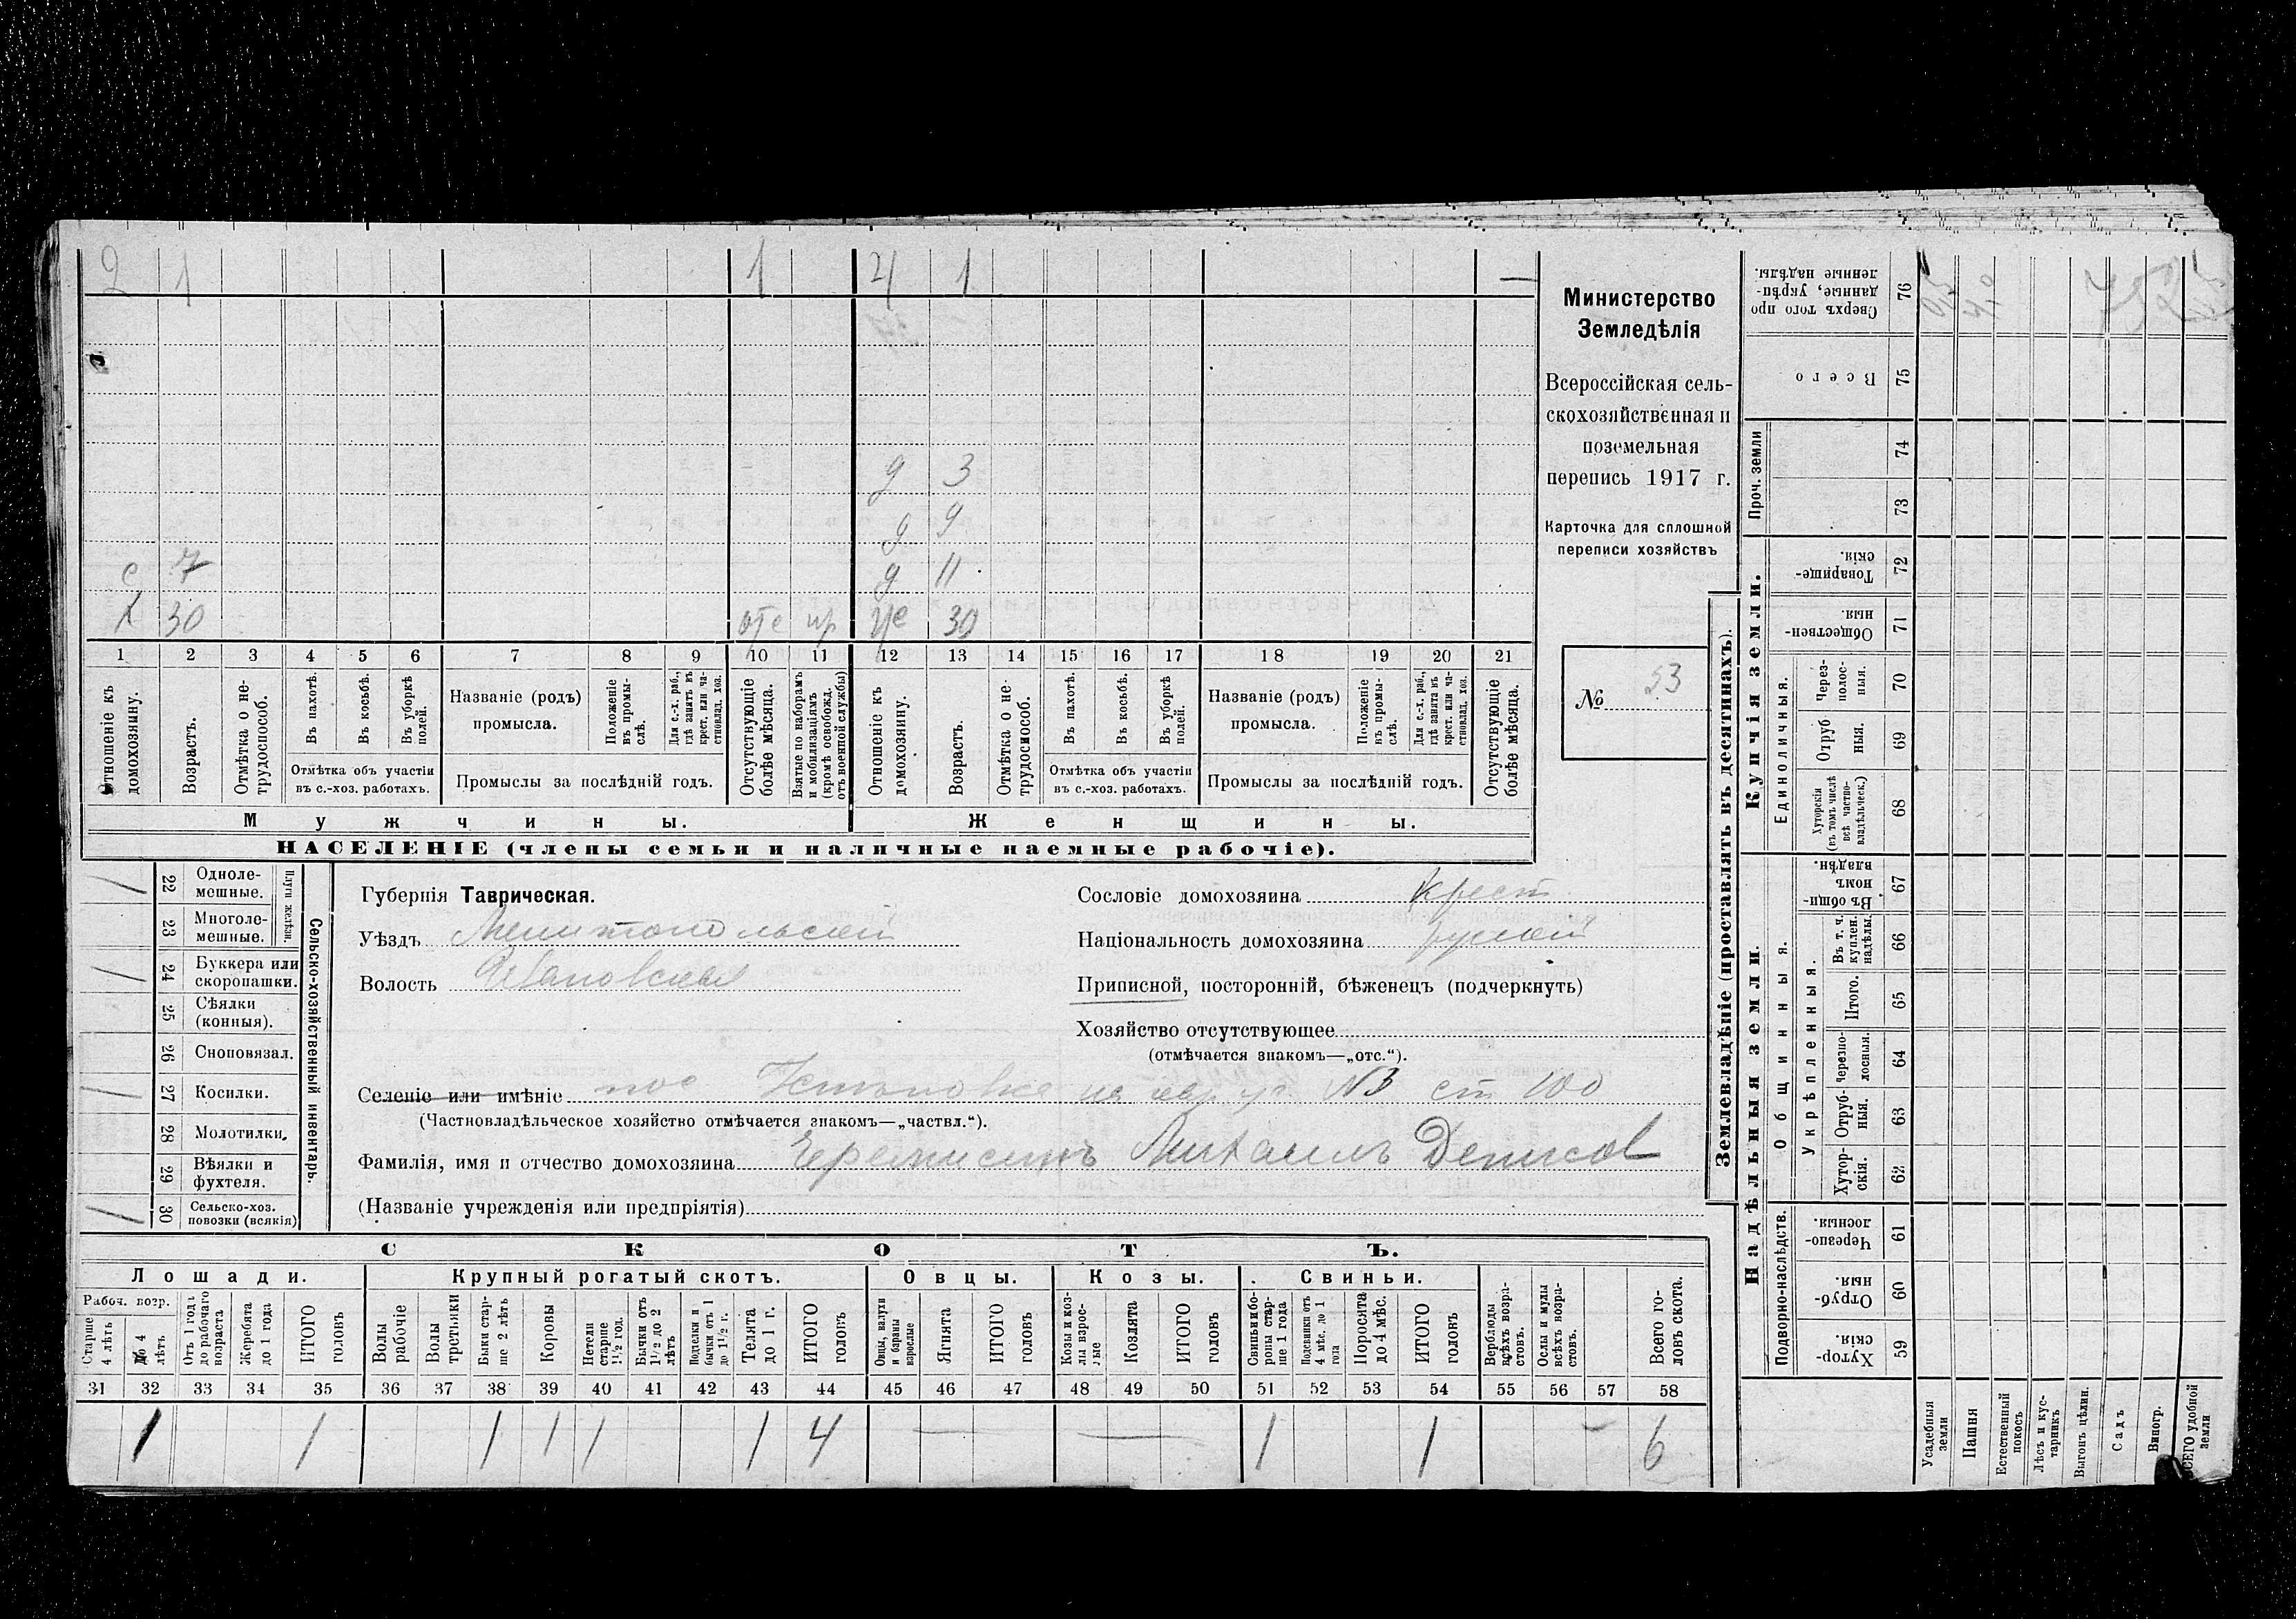 2 1 1 4 1 —
д 3
д 9
с 7 д 11
х 30 отс пр же 30
1 2 3 4 5 6 7 8 9 10 11 12 13 14 15 16 17 18 19 20 21
Отношеніе къ домохозяину.
Возрастъ.
Отмѣтка о нетрудоспособ.
Въ пахотѣ.
Въ косьбѣ.
Въ уборкѣ полей.
Отмѣтка объ участіи въ с.-хоз. работахъ.
Названіе (родъ) промысла.
Положеніе въ промыслѣ.
Для с.-х. раб., гдѣ занятъ въ крест. или частновлад. хоз.
Промыслы за послѣдній годъ.
Отсутствующіе болѣе мѣсяца.
Взятые по наборамъ и мобилизаціямъ (кромѣ освобожд. отъ военной службы)
Отношеніе къ домохозяину.
Возрастъ.
Отмѣтка о нетрудоспособ.
Въ пахотѣ.
Въ косьбѣ.
Въ уборкѣ полей.
Отмѣтка объ участіи въ с.-хоз. работахъ.
Названіе (родъ) промысла.
Положеніе въ промыслѣ.
Для с.-х. раб., гдѣ занята въ крест. или частновлад. хоз.
Промыслы за послѣдній годъ.
Отсутствующіе болѣе мѣсяца.
Мужчины. Женщины.
НАСЕЛЕНІЕ (члены семьи и наличные наемные рабочіе).
Министерство
Земледѣлія
Всероссійская сель-
скохозяйственная и
поземельная
перепись 1917 г.
Карточка для сплошной
переписи хозяйствъ
№ 53
Сельско-хозяйственный инвентарь.
Плуги желѣзн.
/ 22 Однолемешные.
23 Многолемешные.
/ 24 Буккера или скоропашки.
25 Сѣялки (конныя).
26 Сноповязал.
/ 27 Косилки.
28 Молотилки.
29 Вѣялки и фухтеля.
/ 30 Сельско-хоз. повозки (всякія)
Губернія Таврическая.
Уѣздъ Мелитопольскій
Волость Ивановская
Сословіе домохозяина крест.
Національность домохозяина русскій
Приписной, посторонній, бѣженецъ (подчеркнуть)
Хозяйство отсутствующее
(отмѣчается знакомъ—„отс.“).
Селеніе или имѣніе пос № 3 ст 100
(Частновладѣльческое хозяйство отмѣчается знакомъ—„частвл.“).
Фамилія, имя и отчество домохозяина Михаилъ Денисов
(Названіе учрежденія или предпріятія)
СКОТЪ.
Лошади. Крупный рогатый скотъ. Овцы. Козы. Свиньи.
Рабоч. возр.
Старше 4 лѣтъ
До 4 лѣтъ
Отъ 1 года до рабочаго возраста
Жеребята до 1 года
ИТОГО головъ
Волы рабочіе
Волы третьяки
Быки старше 2 лѣтъ
Коровы
Нетели старше 1½ год.
Бычки отъ 1½ до 2 лѣтъ
Подтелки и бычки отъ 1 до 1½ г.
Телята до 1 г.
ИТОГО головъ
Овцы, валухи и бараны взрослые
Ягнята
ИТОГО головъ
Козы и козлы взрослые
Козлята
ИТОГО головъ
Свиньи и боровы старше 1 года
Подсвинки отъ 4 мѣс. до 1 года
Поросята до 4 мѣс.
ИТОГО головъ
Верблюды всѣхъ возрастовъ.
Ослы и мулы всѣхъ возрастовъ.
Всего головъ скота.
31 32 33 34 35 36 37 38 39 40 41 42 43 44 45 46 47 48 49 50 51 52 53 54 55 56 57 58
1 1 1 1 1 1 4 — — 1 1 — 6
Землевладѣніе (проставлять въ десятинахъ).
Купчія земли.
Надѣльныя земли.
76 Сверхъ того проданные, укрѣпленные надѣлы.
75 Всего
Проч. земли
74
73
72 Товарищескія.
71 Общественныя.
Единоличныя.
70 Черезполосныя.
69 Отрубныя.
68 Хуторскія (въ томъ числѣ всѣ частновладѣльческ.)
Общинныя.
67 Въ общинномъ владѣн.
Укрѣпленныя.
66 Въ т. ч. куплен. надѣлы.
65 Итого.
64 Черезполосныя.
63 Отрубныя.
62 Хуторскія.
Подворно-наслѣдств.
61 Черезполосныя.
60 Отрубныя.
59 Хуторскія.
Усадебныя земли
Пашня
Естественный покосъ
Лѣсъ и кустарникъ
Выгонъ цѣлин.
Садъ
Виногр.
ВСЕГО удобной земли